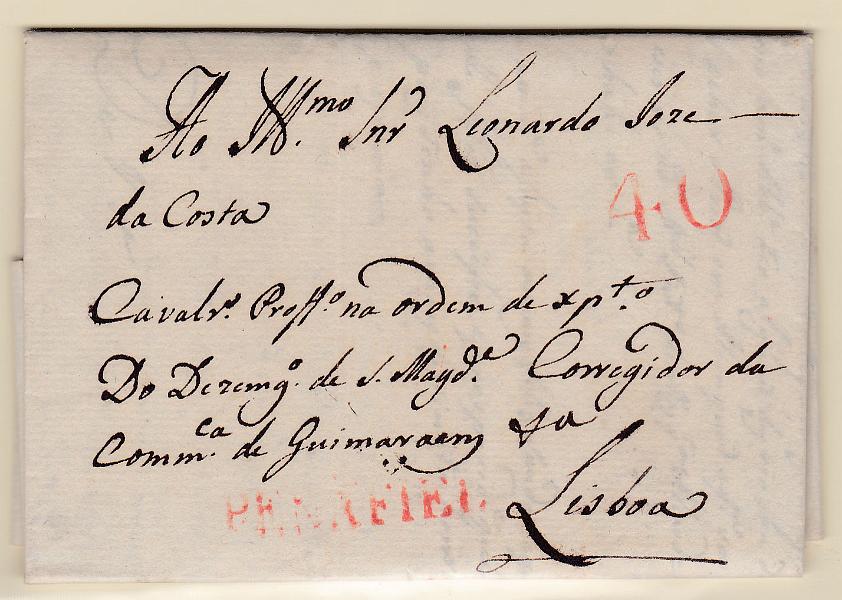 Ao Illmo. Snr Leonardo Joze
da Costa
40
Cavalro. Proffo. na ordem de xpto.
Do Dezemgo. de S. Magde. Corregidor da
Commca. de Guimaraens
Lisboa
PENAFIEL